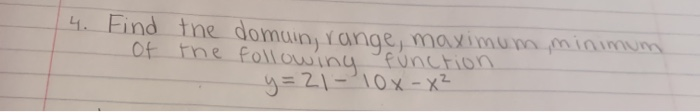 4. Find the domain, range, maximum, minimum
Of the following function
y = 21 - 10x - x²